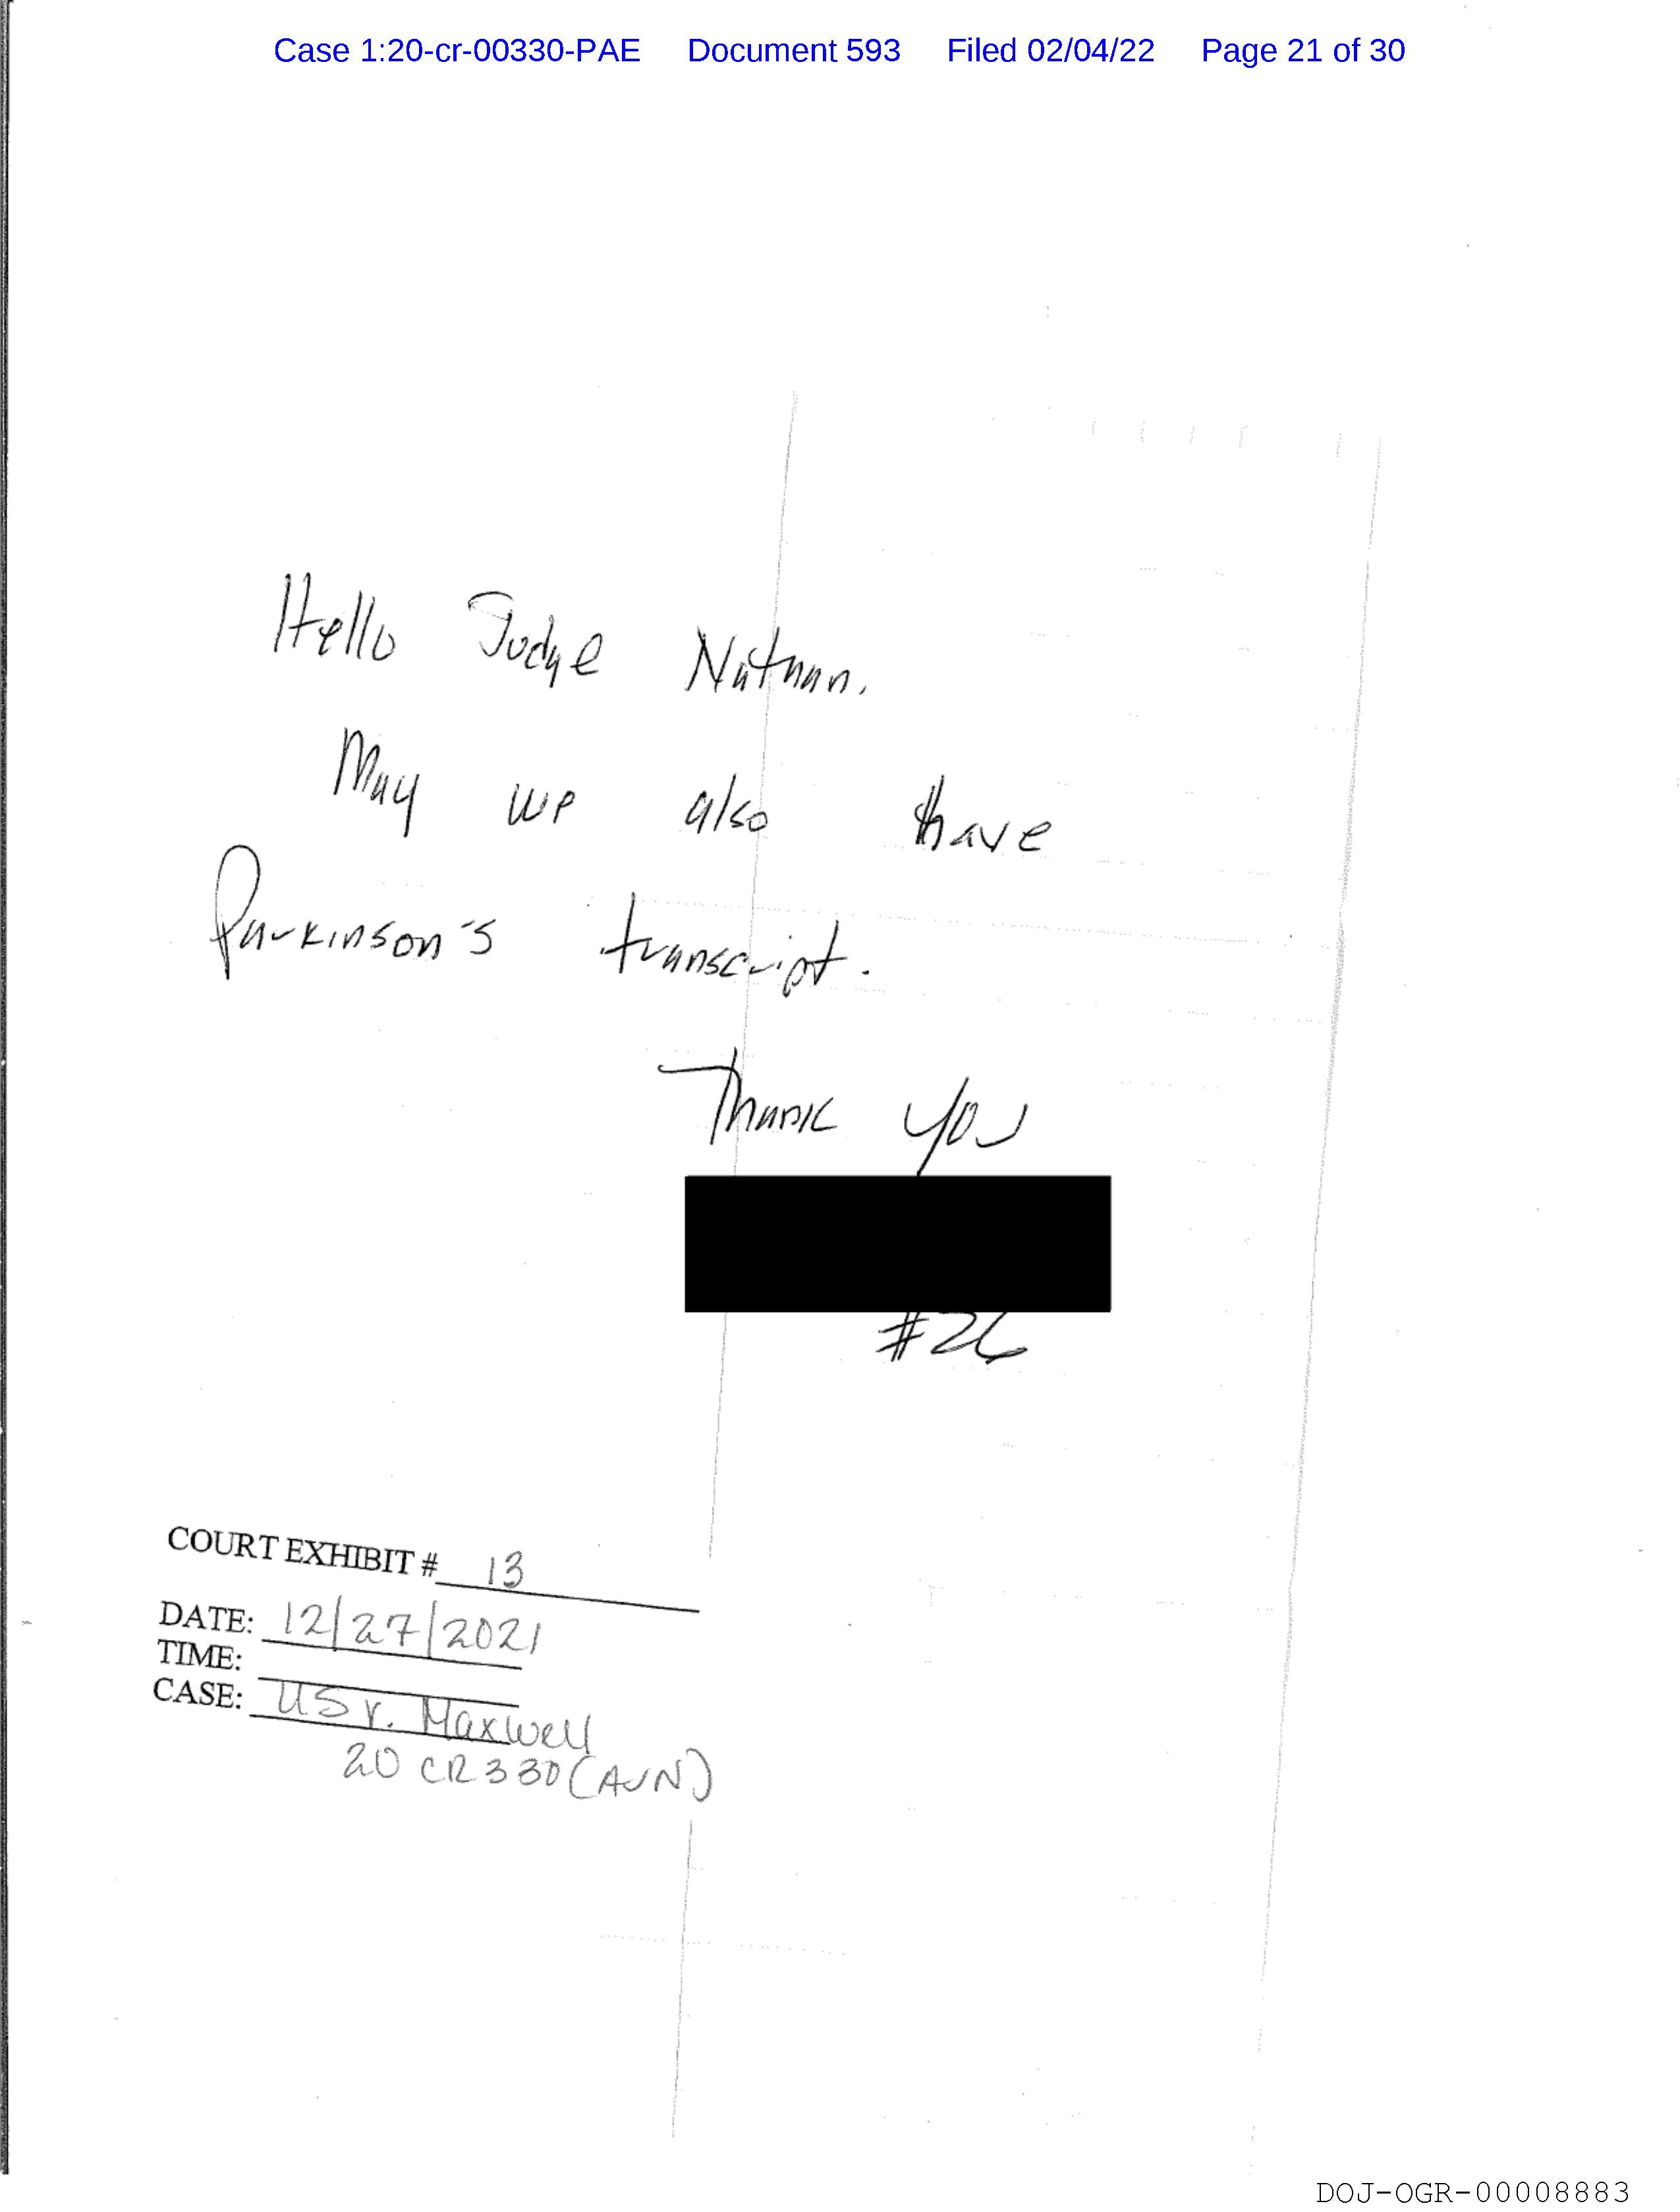 Case 1:20-cr-00330-PAE Document 593 Filed 02/04/22 Page 21 of 30
Hello Judge Nathan.
May we also have
Parkinson's transcript.
Thank you
#26
COURT EXHIBIT # 13
DATE: 12/27/2021
TIME:
CASE: US v. Maxwell
20 CR 330 (AJN)
DOJ-OGR-00008883